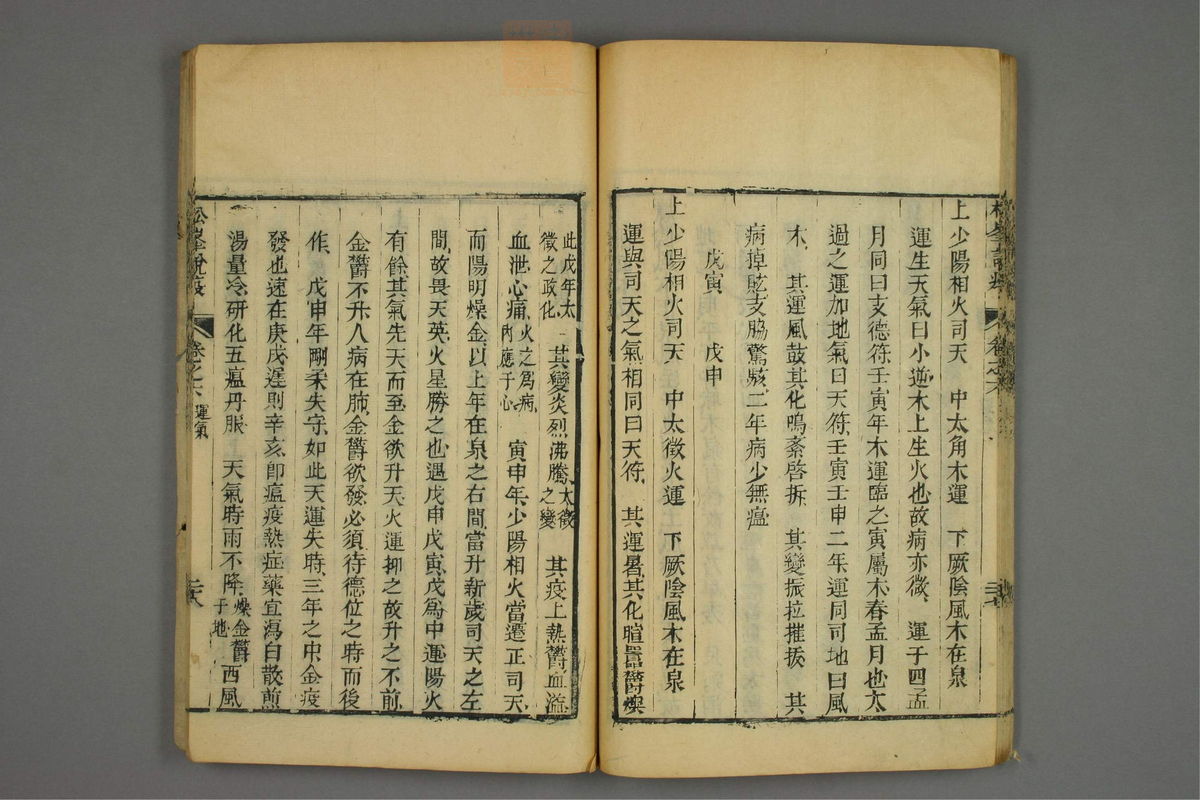 上少陽相火司天　中太角木運　下厥陰風木在泉
運生天氣曰小逆木上生火也故病亦微　運于四孟
月同曰支德符壬寅年木運臨之寅屬木春孟月也太
過之運加地氣曰天符壬寅壬申二年運同司地曰風
木　其運風鼓其化鳴紊啓拆　其變振拉摧拔　其
病掉眩支脇驚駭二年病少無瘟
戊寅　戊申
上少陽相火司天　中太徵火運　下厥陰風木在泉
運與司天之氣相同曰天符　其運暑其化暄囂鬱燠
此戊年太
徵之政化　其變炎烈沸騰
太徵
之變　其疫上熱鬱血溢
血泄心痛
火之為病
內應于心　寅申年少陽相火當遷正司天
而陽明燥金以上年在泉之右間當升新歲司天之左
間故畏天英火星勝之也遇戊申戊寅戊為中運陽火
有餘其氣先天而至金欲升天火運抑之故升之不前
金鬱不升人病在肺金鬱欲發必須待德位之時而後
作　戊申年剛柔失守如此天運失時三年之中金疫
發也速在庚戌遲則辛亥卽瘟疫熱症藥宜瀉白散煎
湯量冷研化五瘟丹服　天氣時雨不降
燥金鬱
于地　西風
松峯說疫
卷之六
運氣
二十八